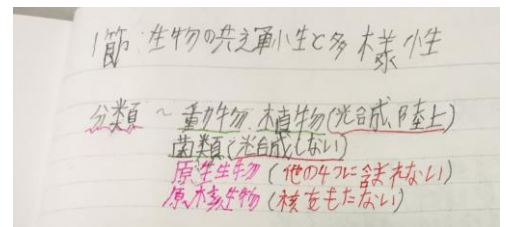 1節 生物の共通性と多様性
分類 ~ 動物、植物(光合成、陸上)
菌類(光合成しない)
原生生物(他の4つに含まれない)
原核生物(核をもたない)